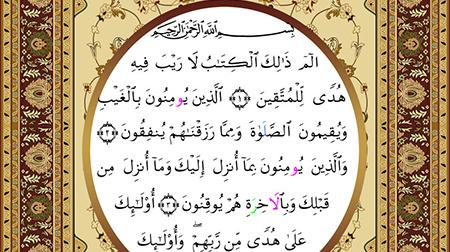 بِسْمِ اللَّهِ الرَّحْمَٰنِ الرَّحِيمِ
الٓمٓ ذَٰلِكَ الْكِتَٰبُ لَا رَيْبَ فِيهِ
هُدًى لِّلْمُتَّقِينَ ﴿١﴾ الَّذِينَ يُومِنُونَ بِالْغَيْبِ
وَيُقِيمُونَ الصَّلَوٰةَ وَمِمَّا رَزَقْنَٰهُمْ يُنفِقُونَ ﴿٢﴾
وَالَّذِينَ يُومِنُونَ بِمَآ أُنزِلَ إِلَيْكَ وَمَآ أُنزِلَ مِن
قَبْلِكَ وَبِالَاخِرَةِ هُمْ يُوقِنُونَ ﴿٣﴾ أُوْلَٰٓئِكَ
عَلَىٰ هُدًى مِّن رَّبِّهِمْ ۖ وَأُوْلَٰٓئِكَ